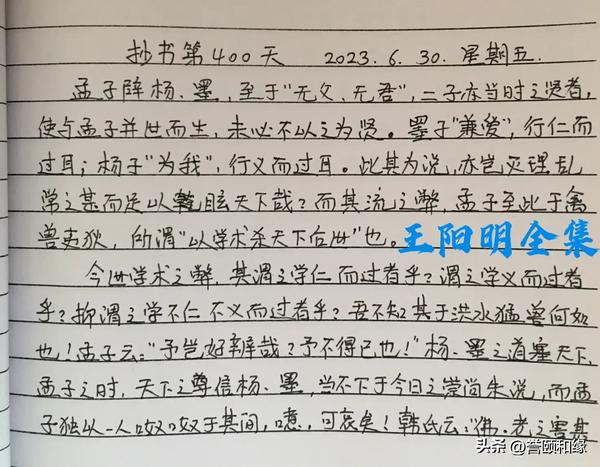 抄书第400天 2023.6.30.星期五.
孟子辟杨、墨,至于"无父、无君",二子亦当时之贤者,
使与孟子并世而生,未必不以之为贤。墨子"兼爱",行仁而
过耳;杨子"为我",行义而过耳。此其为说,亦岂灭理乱
常之甚而足以眩天下哉?而其流之弊,孟子至比于禽
兽夷狄,所谓"以学术杀天下后世"也。
王阳明全集
今世学术之弊,其谓之学仁而过者乎?谓之学义而过者
乎?抑谓之学不仁不义而过者乎?吾不知其于洪水猛兽何如
也!孟子云:"予岂好辩哉?予不得已也!"杨、墨之道塞天下,
孟子之时,天下之尊信杨、墨,当不下于今日之崇尚朱说,而孟
子独以一人呶呶于其间,噫,可哀矣!韩氏云:"佛、老之害甚
头条@誉颐和缘